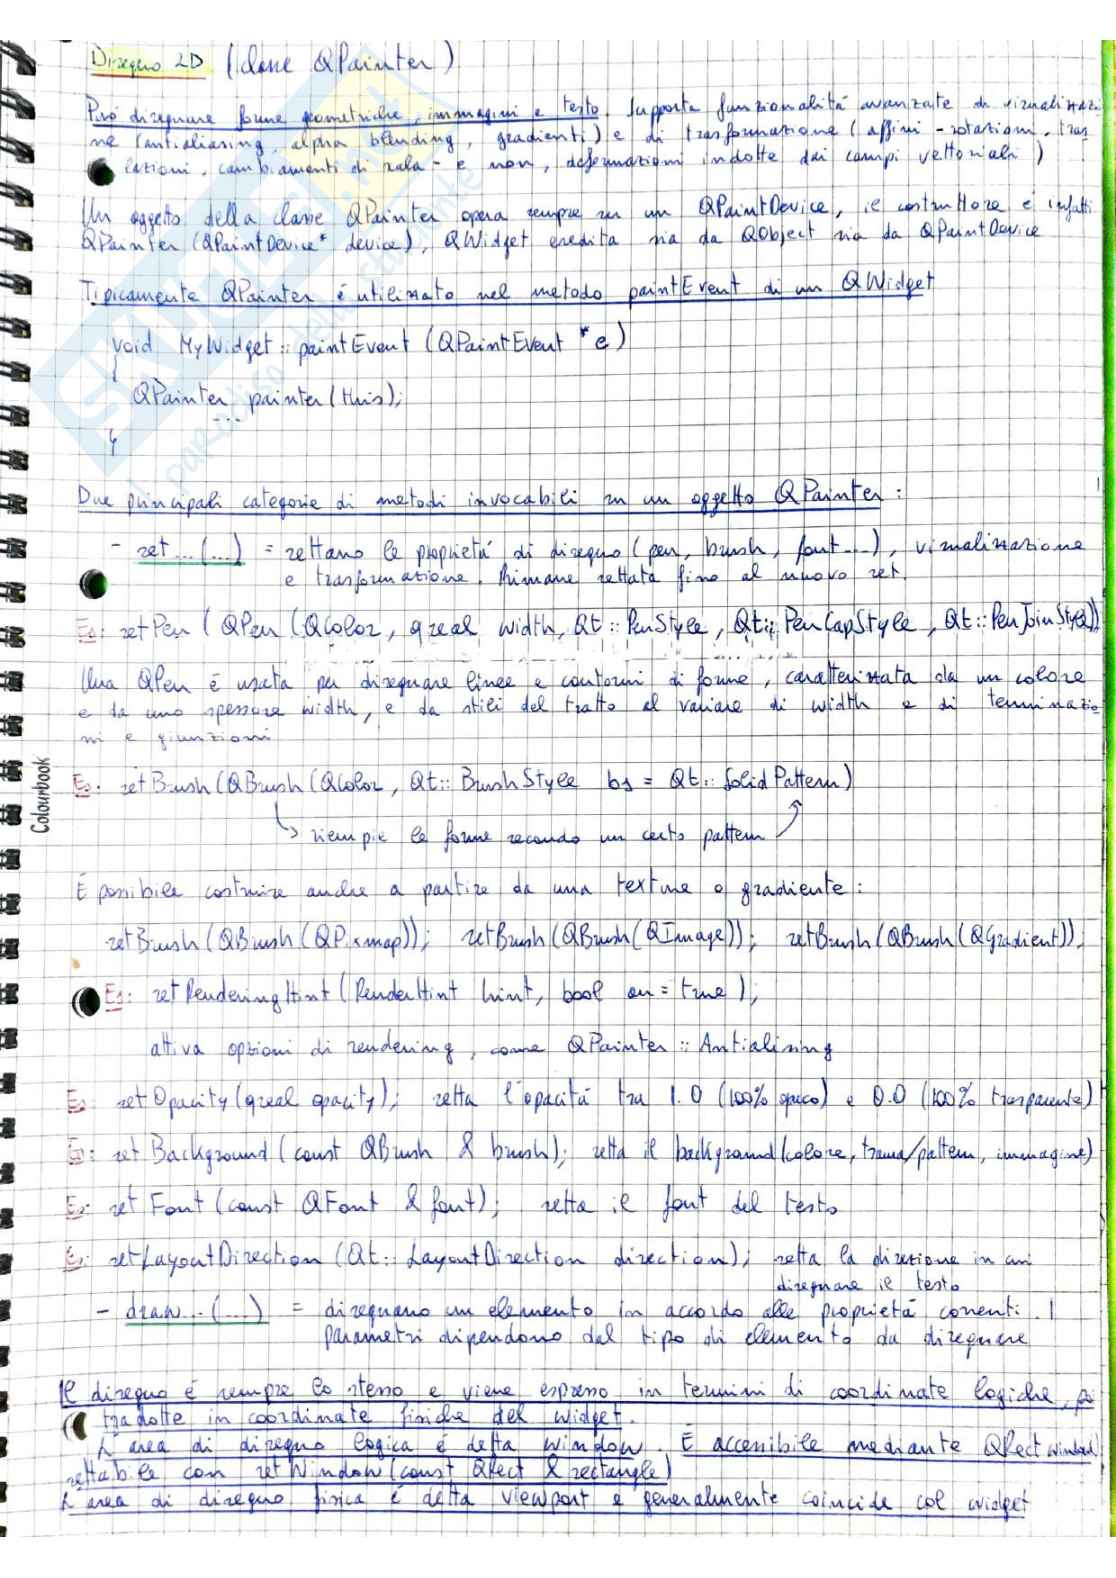 Disegno 2D (classe QPainter)
Può disegnare forme geometriche, immagini e testo. Supporta funzionalità avanzate di visualizzazio
ne (antialiasing, alpha blending, gradienti) e di trasformazione (affini - rotazioni, tras
lazioni, cambiamenti di scala - e non, deformazioni indotte dai campi vettoriali)
Un oggetto della classe QPainter opera sempre su un QPaintDevice, il costruttore è infatti
QPainter (QPaintDevice* device), QWidget eredita sia da QObject sia da QPaintDevice
Tipicamente QPainter è utilizzato nel metodo paintEvent di un QWidget
void MyWidget::paintEvent (QPaintEvent *e)
{
QPainter painter(this);
...
}
Due principali categorie di metodi invocabili su un oggetto QPainter:
- set...(...) = settano le proprietà di disegno (pen, brush, font...), visualizzazione
e trasformazione. Rimane settata fino al nuovo set.
Es: setPen (QPen (QColor, qreal width, Qt::PenStyle, Qt::PenCapStyle, Qt::PenJoinStyle))
Una QPen è usata per disegnare linee e contorni di forme, caratterizzata da un colore
e da uno spessore width, e da stili del tratto al variare di width e di terminazio
ni e giunzioni
Es: setBrush(QBrush(QColor, Qt::BrushStyle bs = Qt::SolidPattern)
riempie le forme secondo un certo pattern
È possibile costruire anche a partire da una texture o gradiente:
setBrush(QBrush(QPixmap)); setBrush(QBrush(QImage)); setBrush(QBrush(QGradient));
Es: setRenderingHint(RenderHint hint, bool on = true);
attiva opzioni di rendering, come QPainter::Antialising
Es: setOpacity(qreal opacity); setta l'opacità tra 1.0 (100% opaco) e 0.0 (100% trasparente)
Es: setBackground(const QBrush & brush); setta il background (colore, trama/pattern, immagine)
Es: setFont(const QFont & font); setta il font del testo
Es: setLayoutDirection (Qt::LayoutDirection direction); setta la direzione in cui
disegnare il testo
- draw...(...) = disegnano un elemento in accordo alle proprietà correnti. I
parametri dipendono dal tipo di elemento da disegnare
Il disegno è sempre lo stesso e viene espresso in termini di coordinate logiche, poi
tradotte in coordinate fisiche del widget.
L'area di disegno logica è detta window. È accessibile mediante QRect window()
settabile con setWindow(const QRect & rectangle)
L'area di disegno fisica è detta viewport e generalmente coincide col widget
Colourbook
SKUOLA
il paradiso dello studente